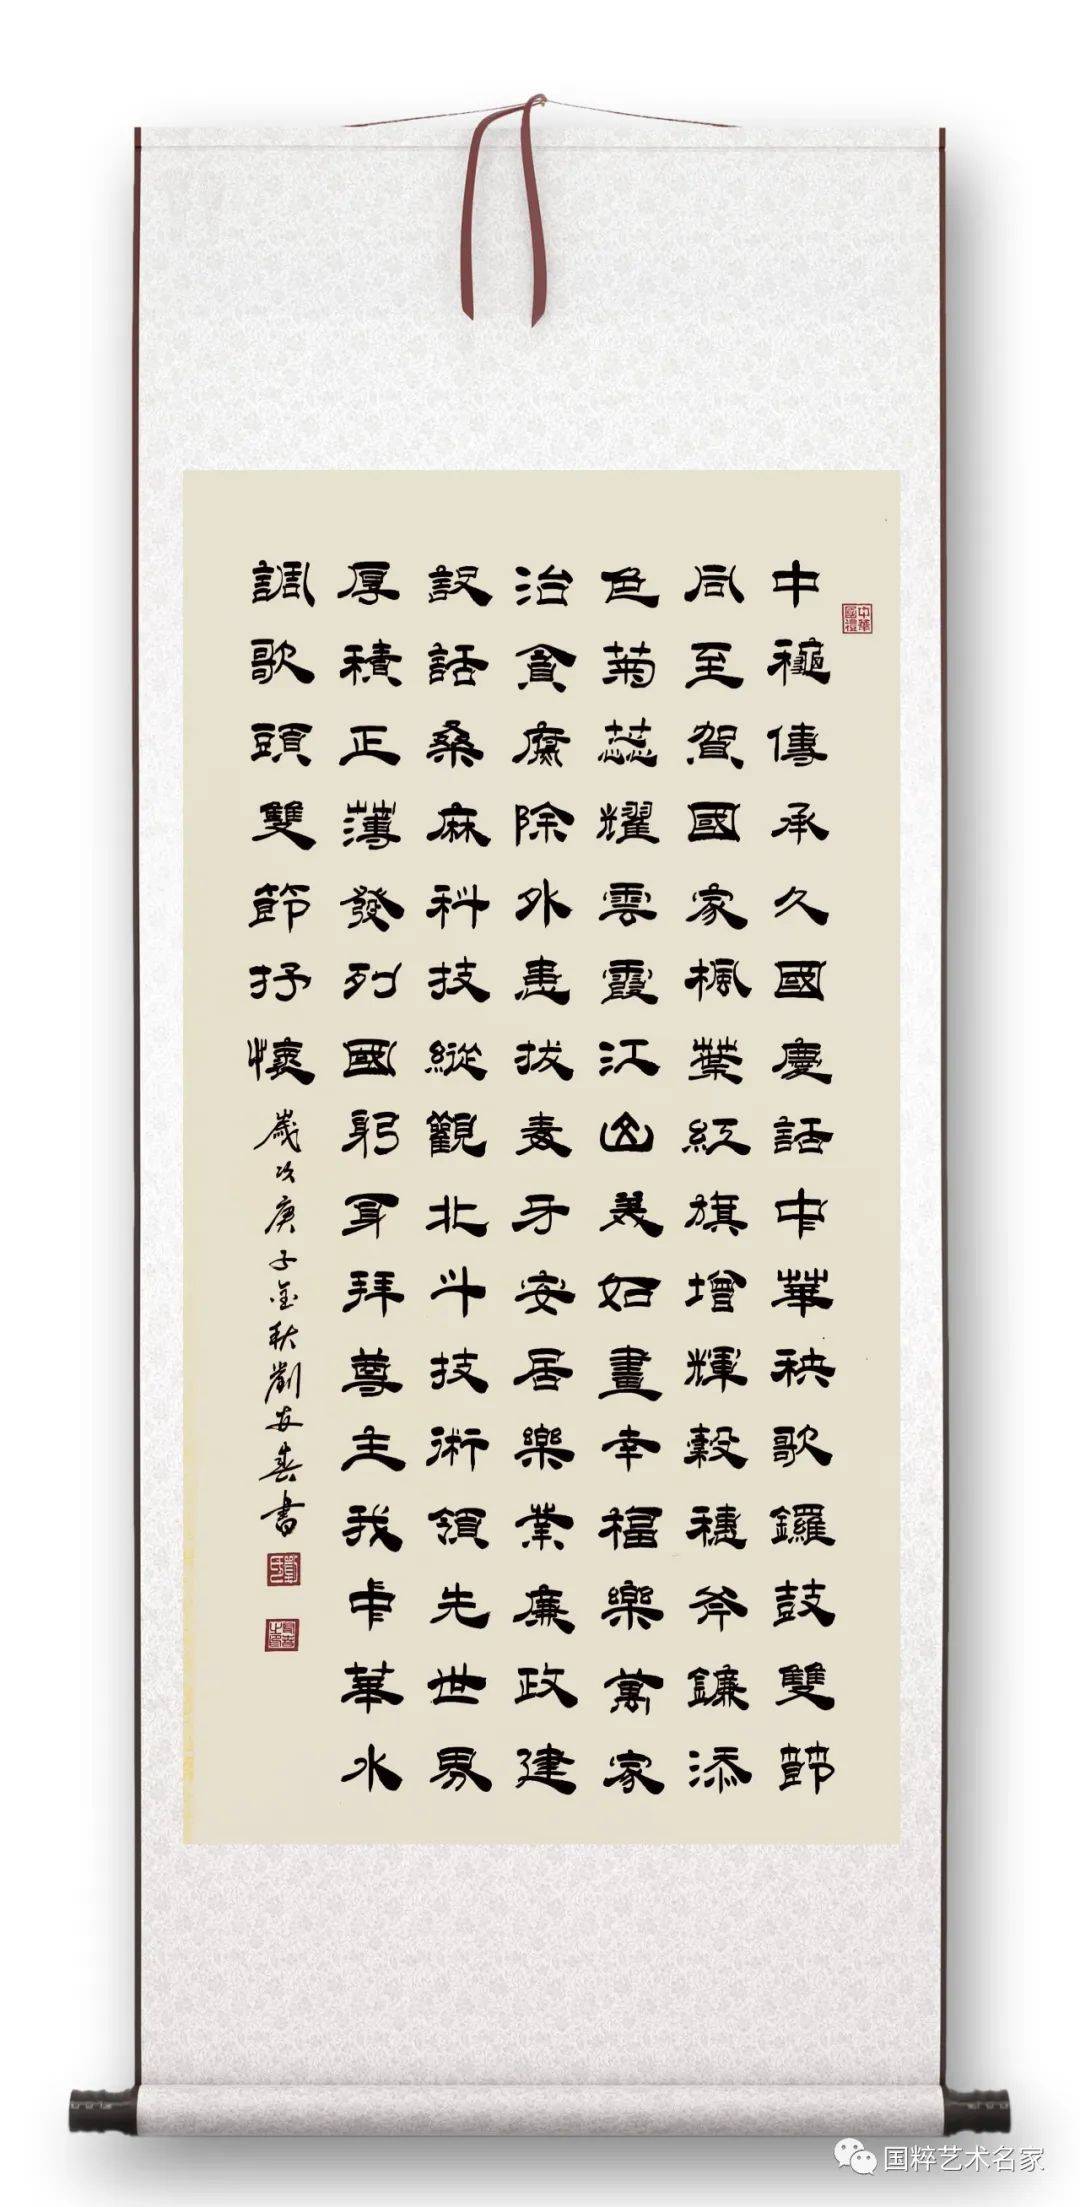 中華國禮
中穐傳承久國慶話中華秧歌鑼鼓雙節
同至賀國家楓葉紅旗增輝穀穗斧鐮添
色菊蕊耀雲霞江山美如畫幸福樂萬家
治貪腐除外患拔毒牙安居樂業廉政建
設話桑麻科技縱觀北斗技術領先世界
厚積正薄發列國躬身拜尊主我中華水
調歌頭雙節抒懷
歲次庚子金秋劉安春書
国粹艺术名家